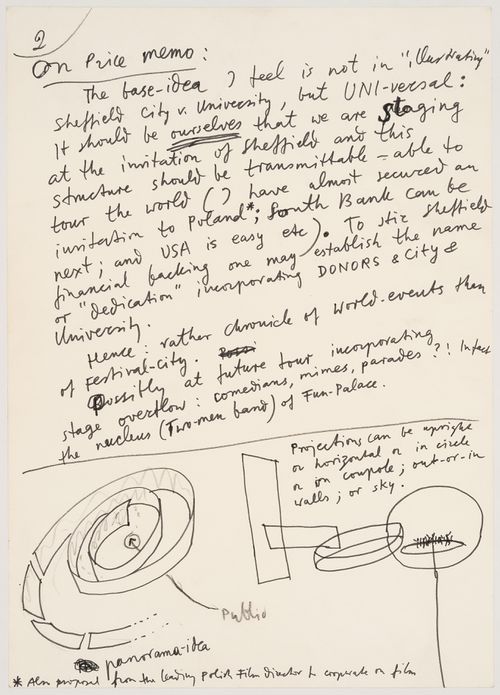 2
On Price memo:
The base-idea I feel is not in "illustrating"
Sheffield City v. University, but UNI-versal:
It should be ourselves that we are staging
at the invitation of Sheffield and this
structure should be transmittable – able to
tour the world (I have almost secured an
invitation to Poland*; South Bank can be
next; and USA is easy etc). To stir Sheffield
financial backing one may establish the name
or "dedication" incorporating DONORS & City &
University.
Hence: rather chronicle of world-events than
of Festival-city.
Possibly at future tour incorporating
stage overflow: comedians, mimes, parades?! In fact
the nucleus (Two-men band) of Fun-Palace.
Projections can be upright
or horizontal or in circle
or on coupole; out-or-in
walls; or sky.
Public
panorama-idea
* Also proposal from the leading Polish Film director to cooperate on film